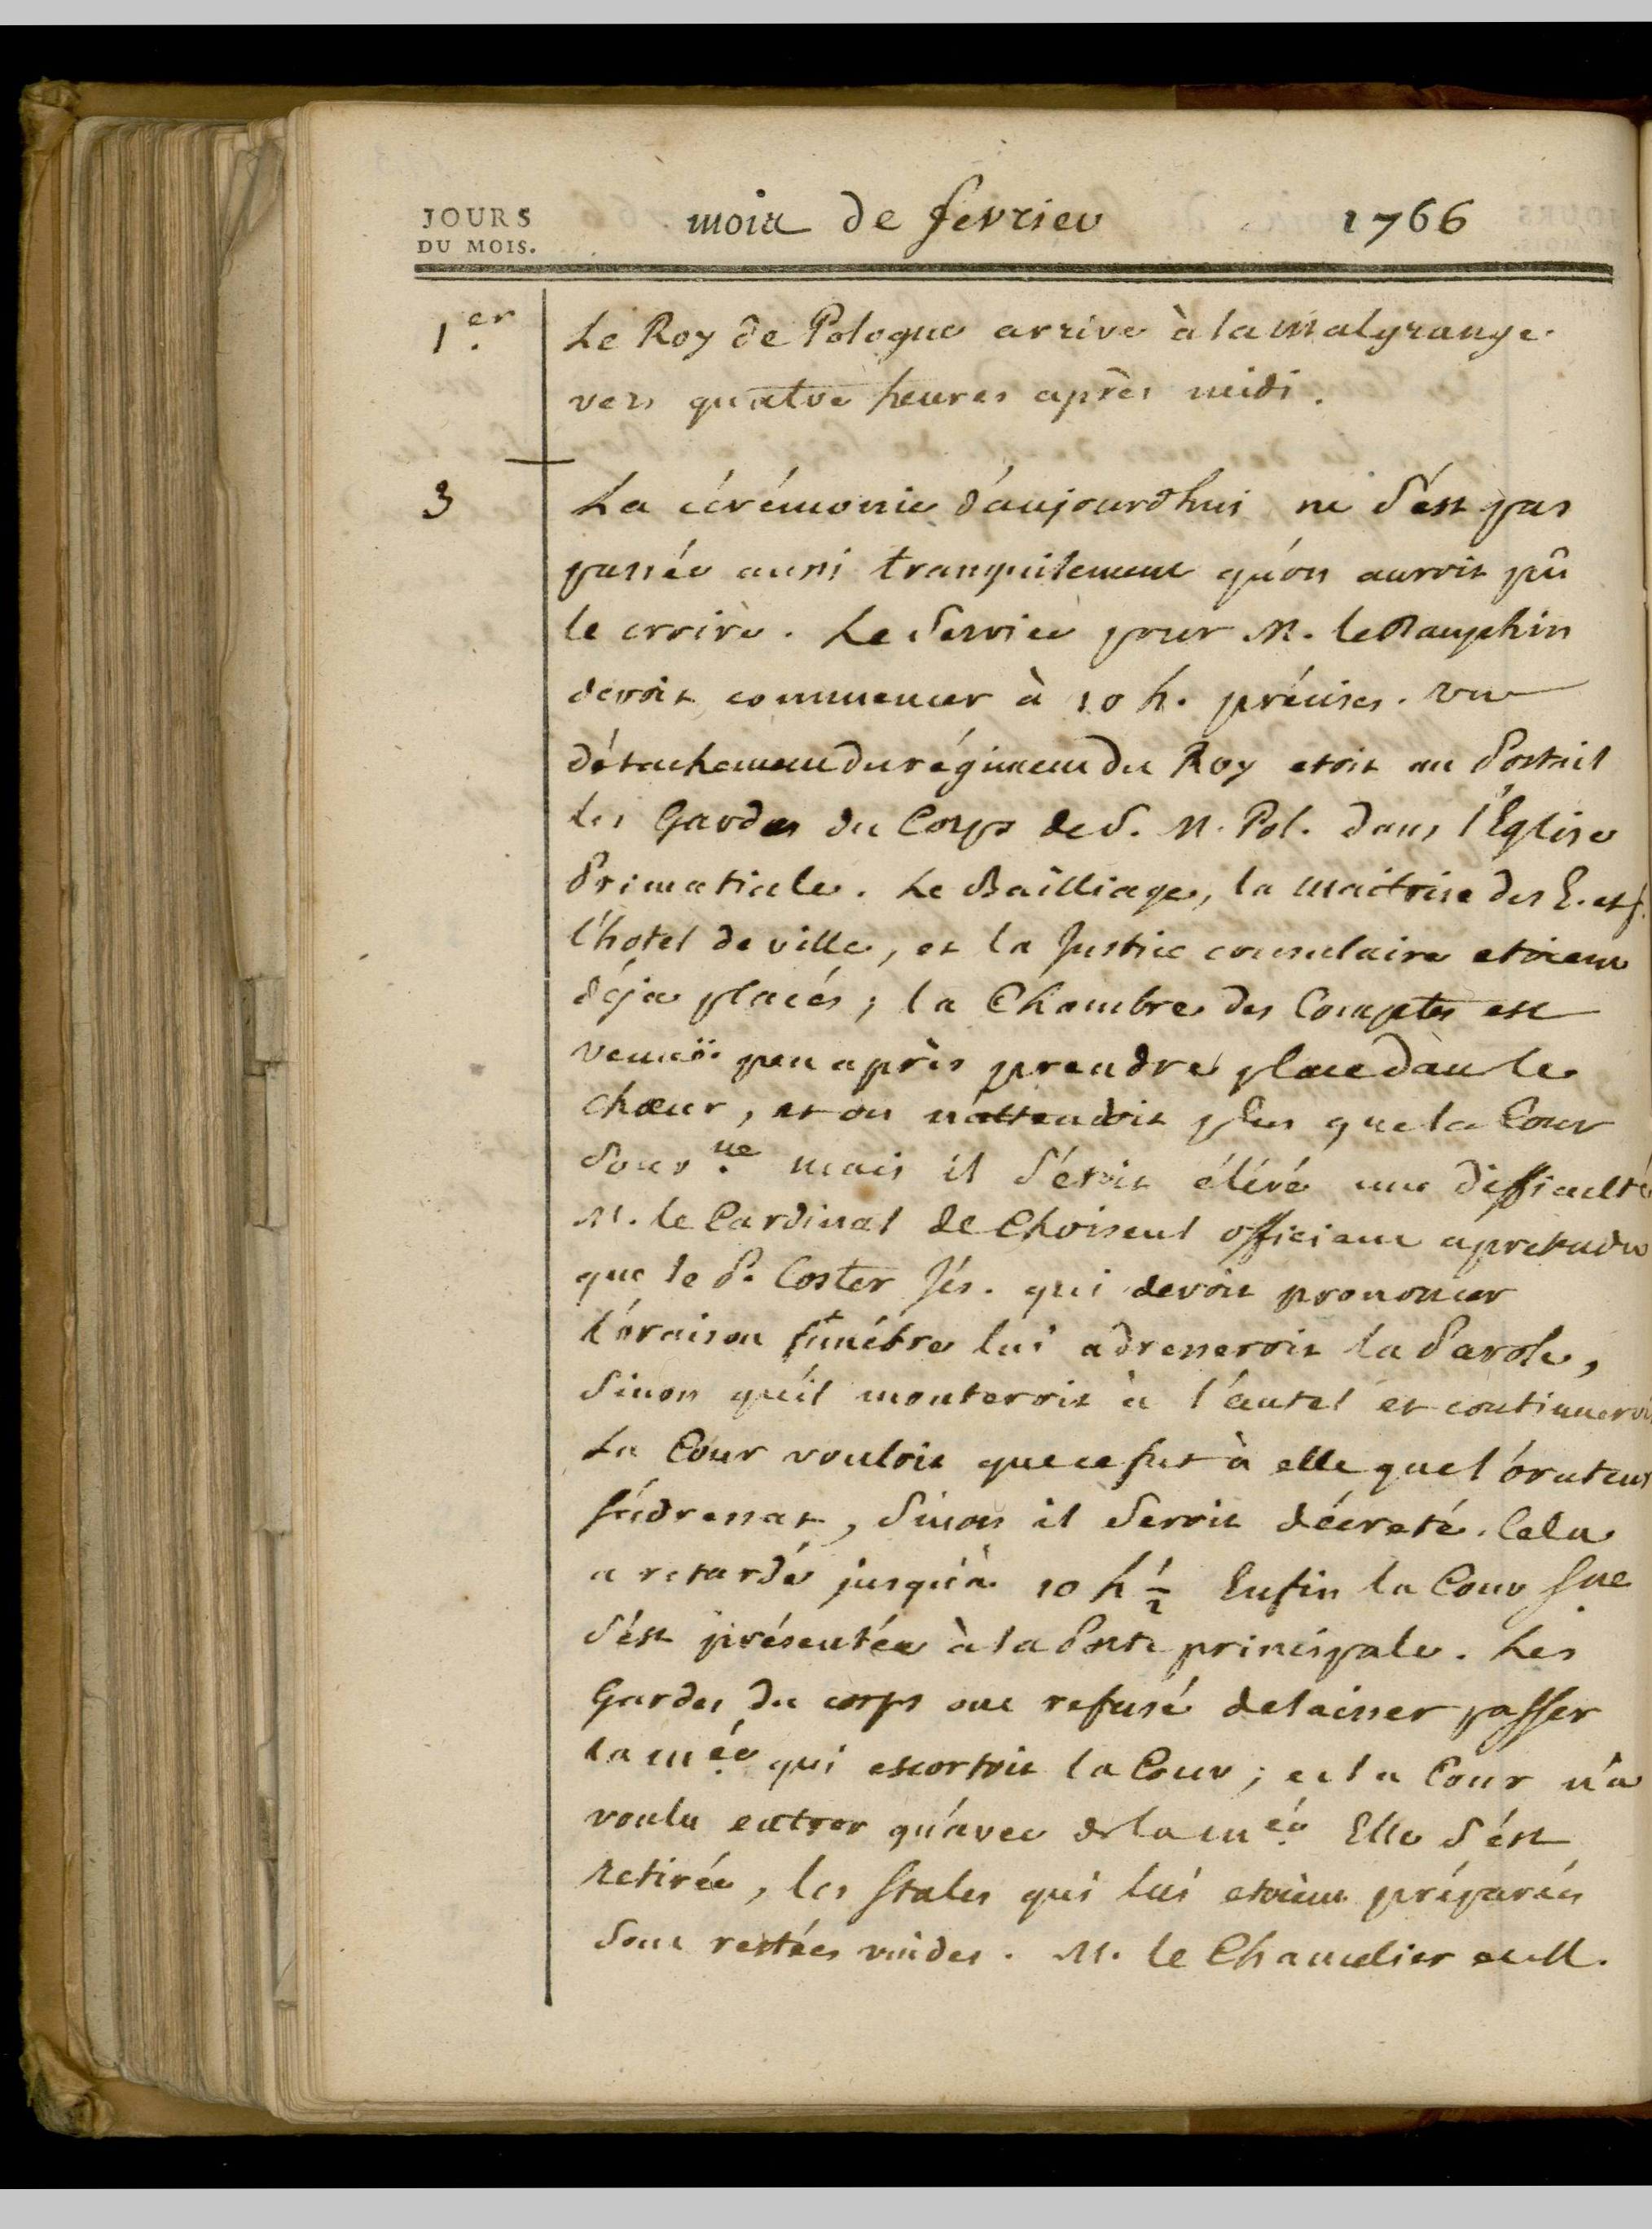 JOURS
DU MOIS.
mois de fevrier 1766
1er. Le Roy de Pologne arrive à la Malgrange
vers quatre heures après midi.
3 La cérémonie d'aujourdhui ne s'est pas
passée aussi tranquilement qu'on auroit pû
le croire. Le Service pour M. le Dauphin
devoit commencer à 10 h. précises. un
détachement du régiment du Roy etoit au Portail
les Gardes du Corps de S. M. Pol. dans l'Eglise
Primatiale. Le Bailliage, la Maitrise des E. et f.
l'hotel de ville, et la Justice consulaire etoient
déja placés; la Chambre des Comptes est
venuë peu après prendre place dans le
chœur, et on n'attendoit plus que la Cour
Souv.ne mais il s'étoit élévé une difficulté
M. le Cardinal de Choiseul officiant a pretendu
que le P. Coster Jés. qui devoit prononcer
l'oraison funébre lui adresseroit la Parole,
Sinon qu'il monteroit à l'autel et continueroit
La Cour vouloit que ce fut à elle que l'orateur
s'adressat, Sinon il Seroit décreté. Cela
a retardé jusqu'à 10 h ½ Enfin la Cour Sne
s'est présentée à la Porte principale. Les
Gardes du corps ont refusé de laisser passer
la m.ée qui escortoit la Cour; et la Cour n'a
voulu entrer qu'avec de la m.ée Elle s'est
retirée, les Stales qui lui etoient préparées
Sont restées vuides. M. le Chancelier et M.